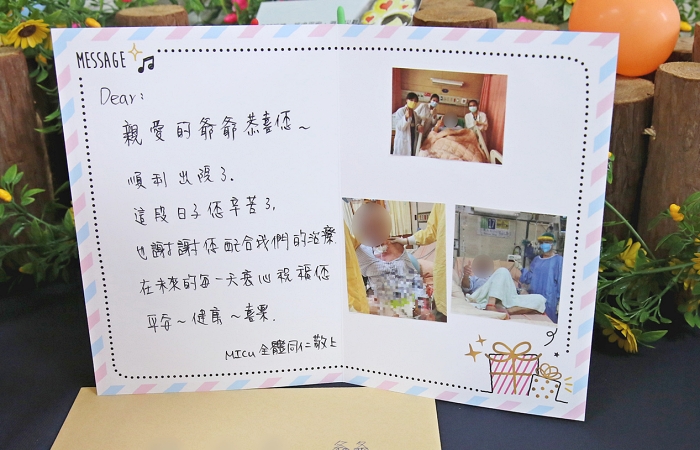 MESSAGE
Dear:
親愛的爺爺恭喜您~
順利出院了.
這段日子您辛苦了,
也謝謝您配合我們的治療.
在未來的每一天衷心祝福您
平安~健康~喜樂.
MICU 全體同仁敬上
爺爺